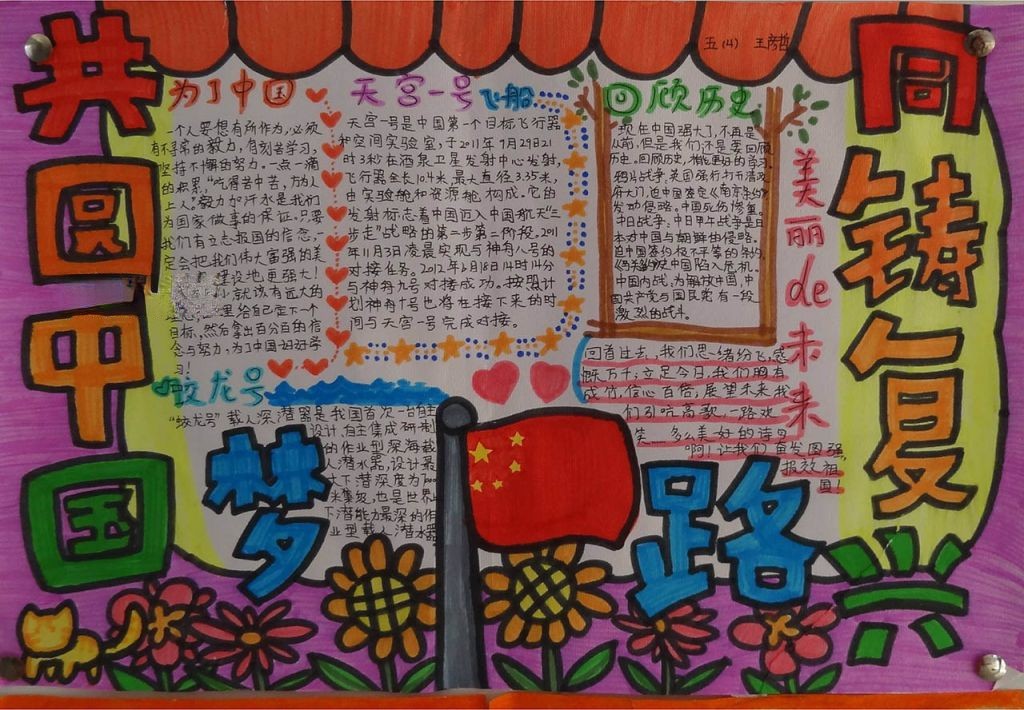 五(4) 王彦哲
共圆中国
梦
同铸复兴
路
为了中国
一个人要想有所作为,必须
有不寻常的毅力,有刻苦学习,
坚持不懈的努力。一点一滴
的积累,“吃得苦中苦,方为人
上人”毅力和汗水是我们
为国家做事的保证。只要
我们有立志报国的信念,
定会把我们伟大富强的美
建设地更强大!
就该有远大的
里给自己定下一个
目标,然后拿出百分百的信
念与努力,为了中国好好学
习!
天宫一号飞船
天宫一号是中国第一个目标飞行器
和空间实验室,于2011年9月29日21
时3秒在酒泉卫星发射中心发射,
飞行器全长10.4米,最大直径3.35米,
由实验舱和资源舱构成。它的
发射标志着中国迈入中国航天“三
步走”战略的第二步第二阶段。2011
年11月3日凌晨实现与神舟八号的
对接任务。2012年6月18日14时14分
与神舟九号对接成功。按照计
划神舟十号也将在接下来的时
间与天宫一号完成对接。
回顾历史
现在中国强大了,不再是
从前,但是我们还是要回顾
历史。回顾历史,才能更好的学习。
鸦片战争,英国强行打开清政
府大门,迫中国签定《南京条约》
发动侵略。中国死伤惨重。
中日战争:中日甲午战争是日
本对中国与朝鲜的侵略。
迫中国签极不平等的条约
中国陷入危机。
中国内战,为解放中国,中
国共产党与国民党有一段
激烈的战斗。
美丽de未来
回首过去,我们思绪纷飞,感
慨万千;立足今日,我们胸有
成竹,信心百倍,展望未来,我
们引吭高歌,一路欢
笑……多么美好的诗里
啊!让我们奋发图强,
报效祖
国!
蛟龙号
“蛟龙号”载人深潜器是我国首次一台自主
设计、自主集成研制
的作业型深海载
人潜水器,设计最
大下潜深度为7000
米集凌,也是世界
下潜能力最深的作
业型载人潜水器